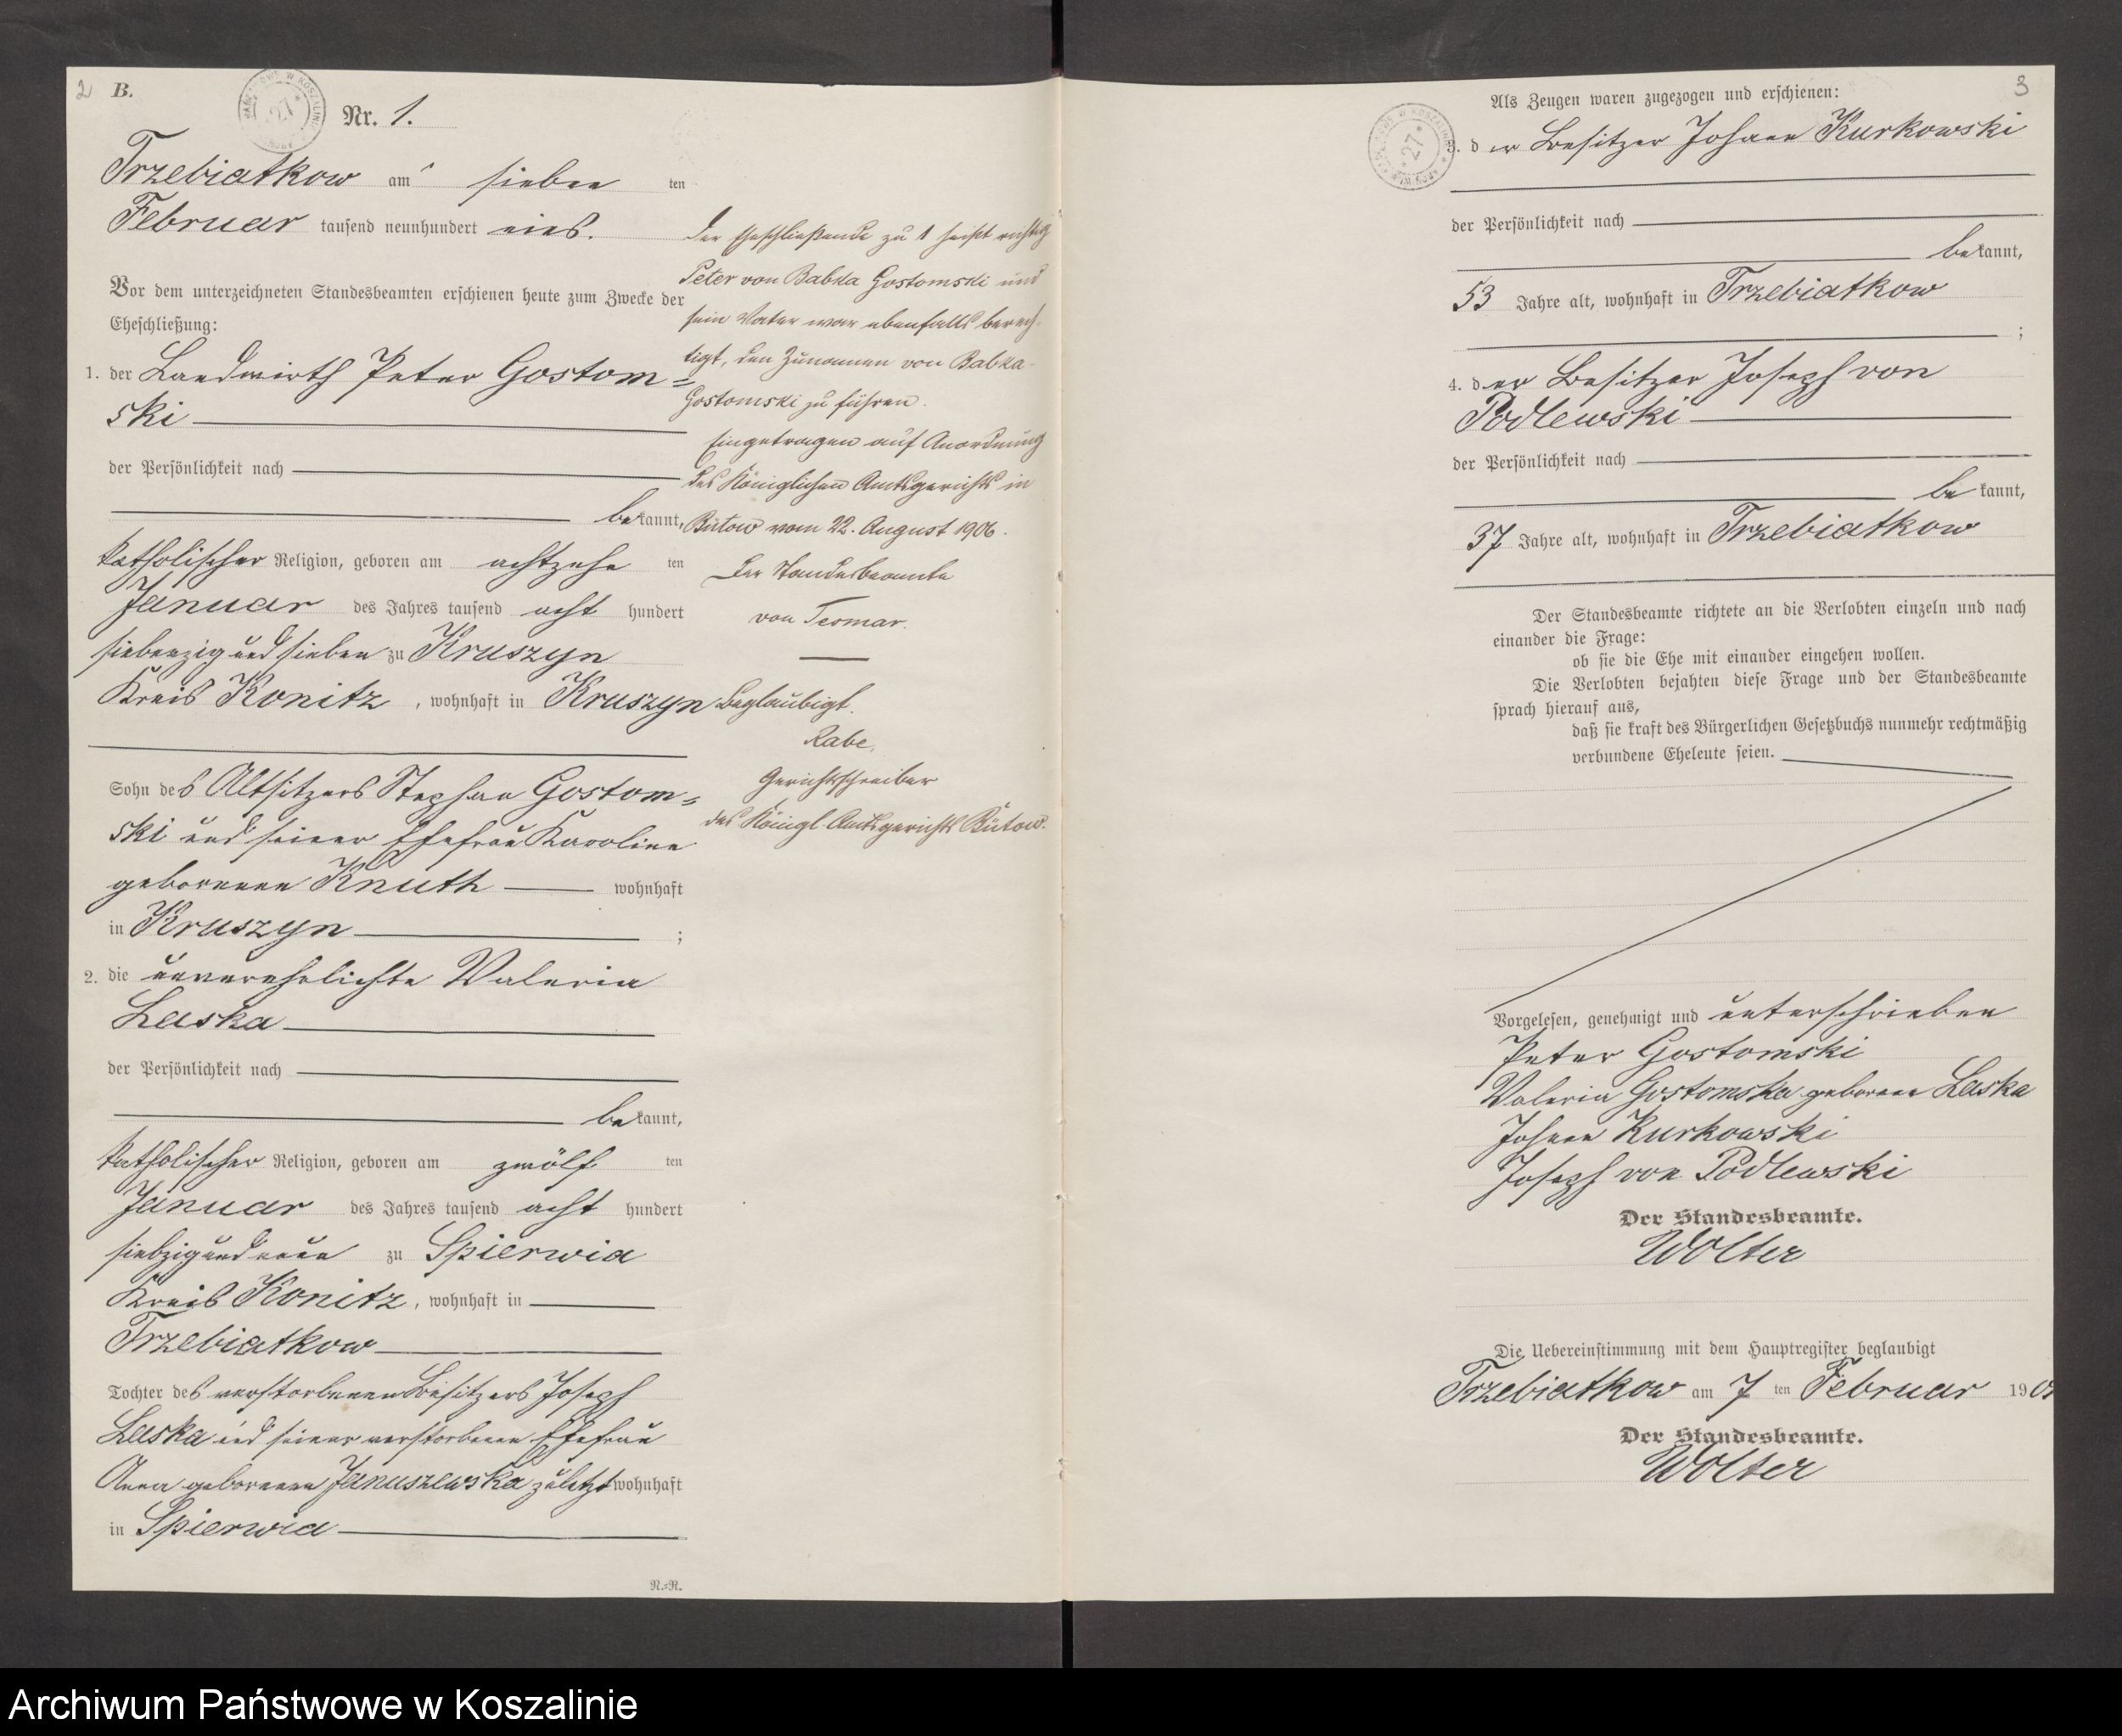 2
B.
Nr. 1.
Trzebiatkow am sieben ten
Februar tausend neunhundert eins.
Vor dem unterzeichneten Standesbeamten erschienen heute zum Zwecke der
Eheschließung:
1. der Landwirth Peter Gostom=
ski
der Persönlichkeit nach
bekannt,
katholischer Religion, geboren am achtzehn ten
Januar des Jahres tausend acht hundert
siebenzig und sieben zu Kruszyn
Kreis Konitz, wohnhaft in Kruszyn
Sohn des Altsitzers Stephan Gostom=
ski und seiner Ehefrau Karoline
geborenen Knuth wohnhaft
in Kruszyn ;
2. die unverehelichte Valeria
Laska
der Persönlichkeit nach
bekannt,
katholischer Religion, geboren am zwölf ten
Januar des Jahres tausend acht hundert
siebzig und neun zu Spierwia
Kreis Konitz, wohnhaft in
Trzebiatkow
Tochter des verstorbenen Besitzers Joseph
Laska und seiner verstorbenen Ehefrau
Anna geborenen Januszewska zuletzt wohnhaft
in Spierwia
R.=R.
Der Eheschließende zu 1 heißt richtig
Peter von Babka Gostomski und
sein Vater war ebenfalls berech-
tigt, den Zunamen von Babka-
Gostomski zu führen.
Eingetragen auf Anordnung
des Königlichen Amtsgerichts in
Bütow vom 22. August 1906.
Der Standesbeamte
von Tesmar.
Beglaubigt.
Rabe,
Gerichtsschreiber
des Königl. Amtsgerichts Bütow.
3
Als Zeugen waren zugezogen und erschienen:
3. der Besitzer Johann Kurkowski
27
der Persönlichkeit nach
bekannt,
53 Jahre alt, wohnhaft in Trzebiatkow
;
4. der Besitzer Joseph von
Podlewski
der Persönlichkeit nach
bekannt,
37 Jahre alt, wohnhaft in Trzebiatkow
Der Standesbeamte richtete an die Verlobten einzeln und nach
einander die Frage:
ob sie die Ehe mit einander eingehen wollen.
Die Verlobten bejahten diese Frage und der Standesbeamte
sprach hierauf aus,
daß sie kraft des Bürgerlichen Gesetzbuchs nunmehr rechtmäßig
verbundene Eheleute seien.
Vorgelesen, genehmigt und unterschrieben
Peter Gostomski
Valeria Gostomska geborene Laska
Johann Kurkowski
Joseph von Podlewski
Der Standesbeamte.
Wolter
Die Uebereinstimmung mit dem Hauptregister beglaubigt
Trzebiatkow am 7 ten Februar 1901
Der Standesbeamte.
Wolter
Archiwum Państwowe w Koszalinie